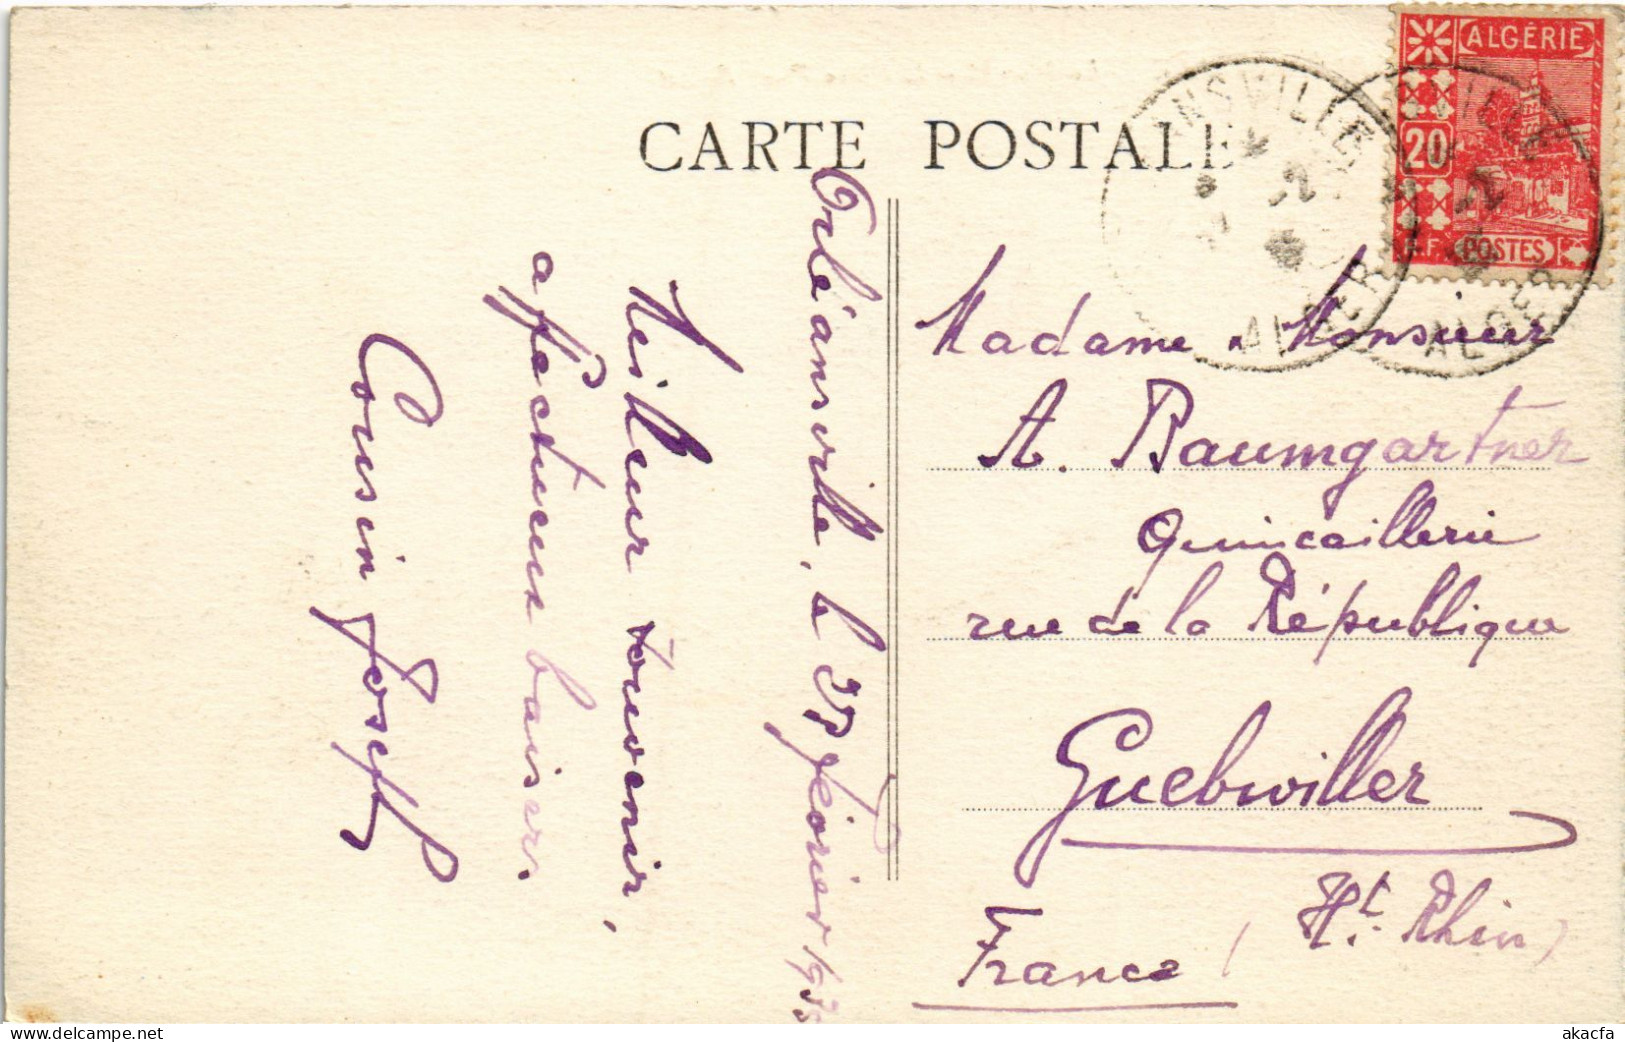 CARTE POSTALE
ALGÉRIE
20
R.F. POSTES
ANSVILLE
ALGER
ALGER
Orléansville, le février 1935
Meilleur souvenir,
affectueux baisers.
Cousin Joseph
Madame & Monsieur
A. Baumgartner
Quincaillerie
rue de la République
Guebwiller
(Ht. Rhin)
France
akacfa